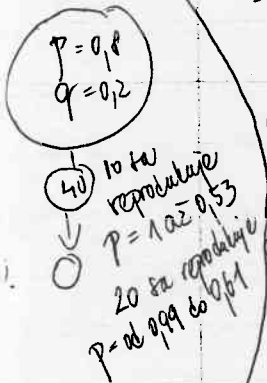 P = 0,8
q = 0,2
40
10 sa
reprodukuje
P = 1 až 0,53
20 sa reprodukuje
P = od 0,99 do 0,61